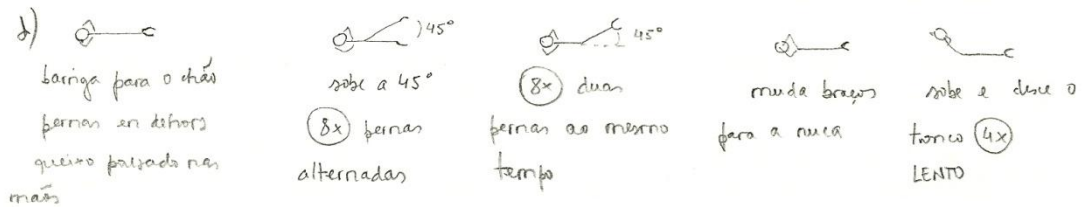 d)
barriga para o chão
pernas en dehors
queixo pousado nas
mãos
45°
sobe a 45°
8x pernas
alternadas
45°
8x duas
pernas ao mesmo
tempo
muda braços
para a nuca
sobe e desce o
tronco 4x
LENTO